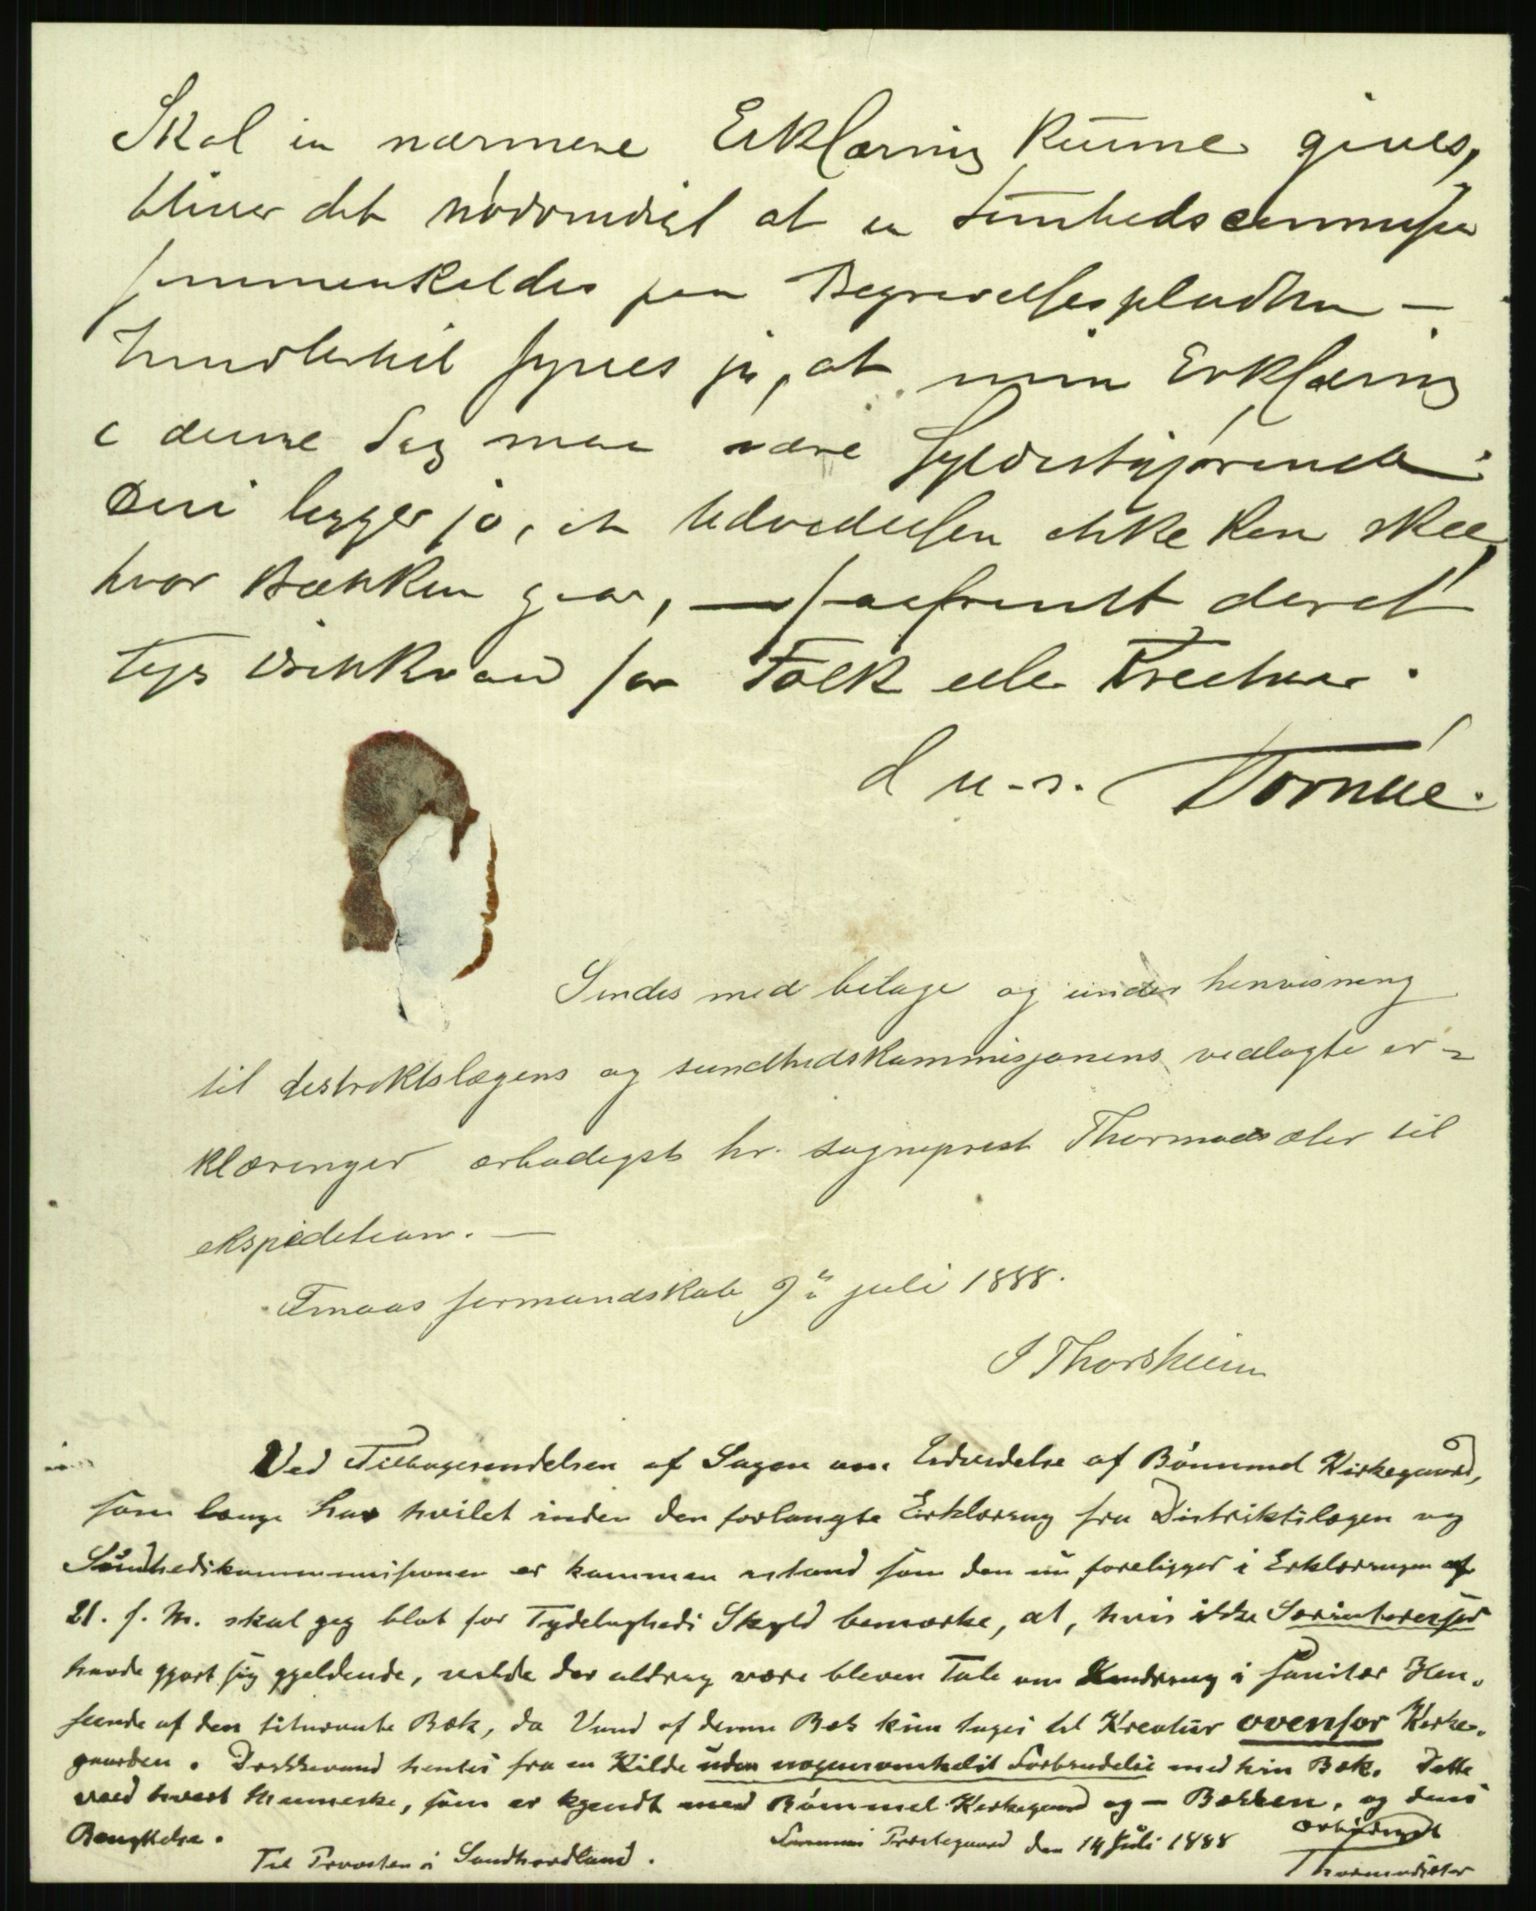 Skal en nærmere Erklæring kunne gives,
bliver det nødvendigt at en Sundhedscommission
sammenkaldes paa Begravelsespladsen —
Imidlertid synes jeg, at min Erklæring
i denne Sag maa være fyldestgjørende.
Deri ligger jo, at Udvidelsen ikke kan skee,
hvor Bækken gaar, — saafremt deraf
tages Drikkevand for Folk eller Creaturer.
d. u. s. Tornøe.
Sendes med bilage og under henvisning
til distriktslægens og sundhedskommisjonens vedlagte er-
klæringer ærbødigst hr. sogneprest Thormodsæter til
ekspedition. —
Finaas formandskab 9de juli 1888.
I Thorsheim
Ved Tilbagesendelsen af Sagen om Udvidelse af Bømmel Kirkegaard,
som længe har hvilet inden den forlangte Erklæring fra Distriktslægen og
Sundhedskommmissionen er kommen istand som den nu foreligger i Erklæringen af
21. f. M. skal jeg blot for Tydeligheds Skyld bemærke, at, hvis ikke Særinteresser
havde gjort sig gjeldende, vilde der aldrig være bleven Tale om Hindring i sanitær Hen-
seende af den bitnævnte Bæk, da Vand af denne Bæk kun tages til Kreatur ovenfor Kirke-
gaarden. Drikkevand hentes fra en Kilde uden nogensomhelst Forbindelse med hin Bæk. Dette
veed hvert Menneske, som er kjendt med Bømmel Kirkegaard og — Bækken, og dens
Benyttelse.
Præstegaard den 14 Juli 1888
ærbødigst
Til Provsten i Søndhordland.
Thormodsæter